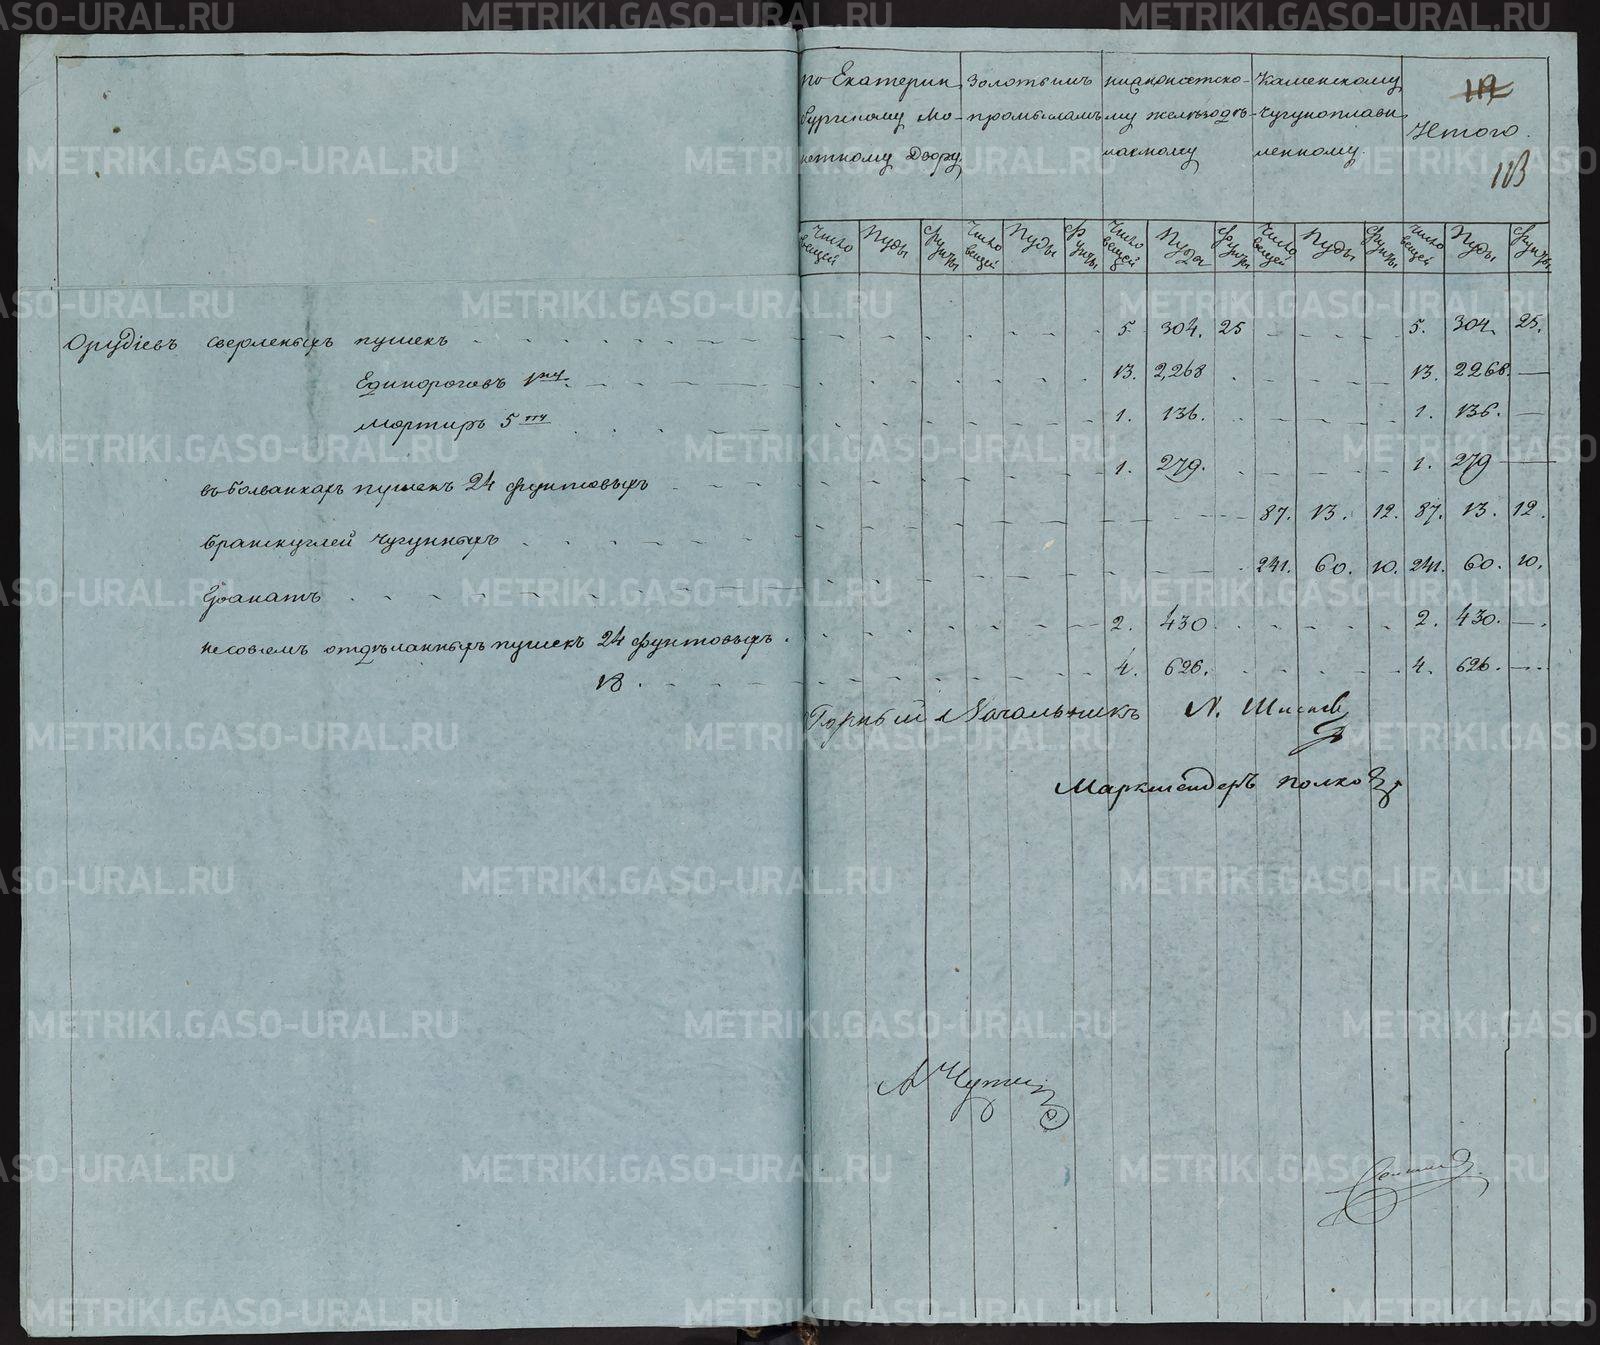 по Екатерин
бургскому Мо-
нетному Двору
Золотымъ
промысламъ
нижнеисетско-
му железодѣ-
лаемому
Каменскому
Чугуноплави
ленному.
Итого.
113
Число вещей Пуды Фунты Число вещей Пуды Фунты Число вещей Пуды Фунты Число вещей Пуды Фунты Число вещей Пуды Фунты
Орудіевъ сверленыхъ пушекъ 5. 304. 25 5. 304. 25.
Единороговъ 13. 2,268 13. 2268.
Мортиръ 5 1. 136. 1. 136.
въ болванкахъ пушекъ 24 фунтовыхъ 1. 279. 1. 279
бранскуглей чугунныхъ 87. 13. 12. 87. 13. 12.
Гранатъ 241. 60. 10. 241. 60. 10.
несовсемъ отдѣланныхъ пушекъ 24 фунтовыхъ. 2. 430. 2. 430.
18. 4. 626. 4. 626.
Горный Начальникъ
Маркшейдеръ
METRIKI.GASO-URAL.RU